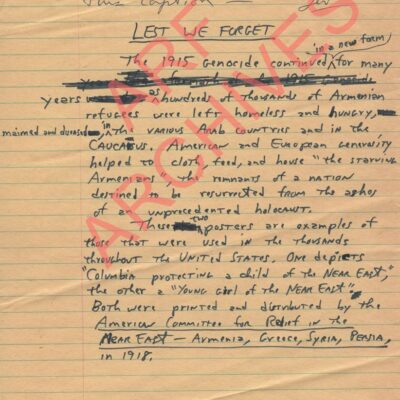 This caption —
LEST WE FORGET
The 1915 genocide continued in a new form for many
years as hundreds of thousands of Armenian
refugees were left homeless and hungry,
maimed and diseased in the various Arab countries and in the
Caucasus. American and European generosity
helped to cloth, feed, and house "the starving
Armenians", the remnants of a nation
destined to be resurrected from the ashes
of an unprecedented holocaust.
These two posters are examples of
those that were used in the thousands
throughout the United States. One depicts
"Columbia protecting a child of the Near East,"
the other a "Young girl of the Near East".
Both were printed and distributed by the
American Committee for Relief in the
Near East — Armenia, Greece, Syria, Persia,
in 1918.
ARF ARCHIVES